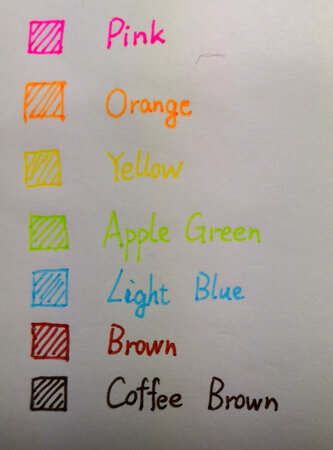 Pink
Orange
Yellow
Apple Green
Light Blue
Brown
Coffee Brown